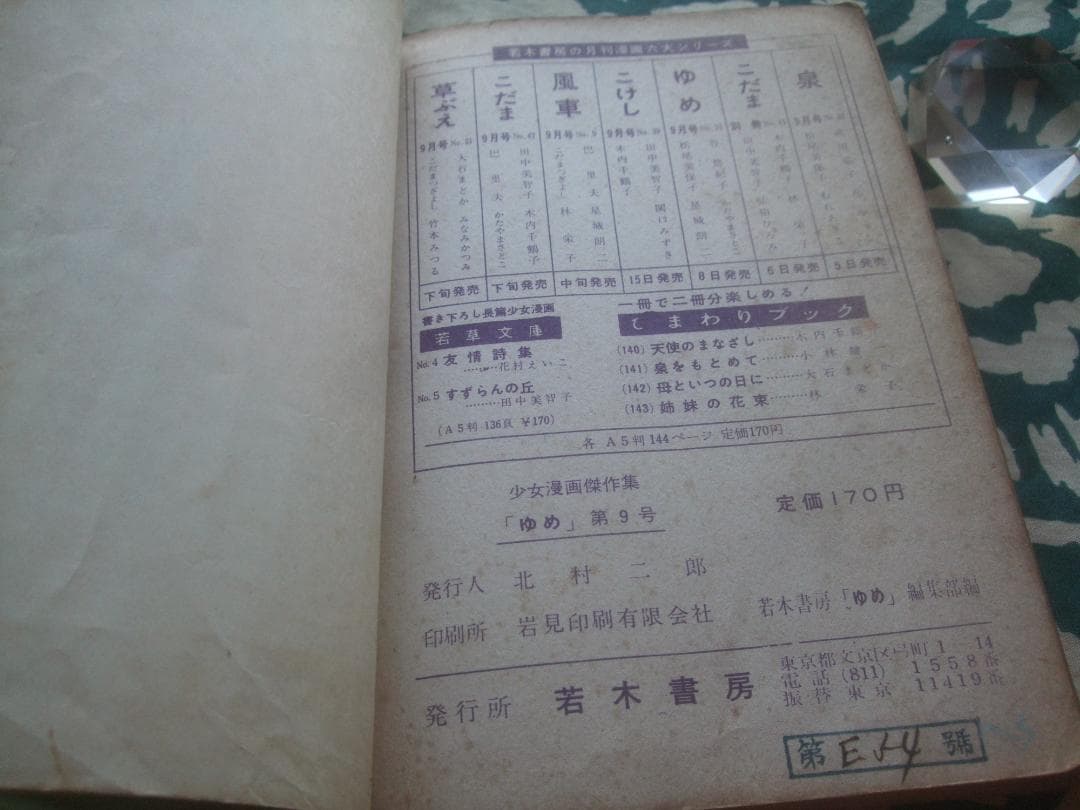 若木書房の月刊漫画六大シリーズ
泉
9月号
5日発売
こだま
木内千鶴子 林 栄子
田中美智子
6日発売
ゆめ
9月号
松尾美保子 星城朗二
8日発売
こけし
9月号 No.39
田中美智子 関けみずき
木内千鶴子
15日発売
風車
9月号 No.9
巴 里夫 星城朗二
こだまつぎよし 林 栄子
中旬発売
こだま
9月号 No.47
田中美智子 木内千鶴子
巴 里夫 かたやまさとこ
下旬発売
草ぶえ
9月号
大石まどか みなみかつみ
こだまつぎよし 竹本みつる
下旬発売
書き下ろし長篇少女漫画
若草文庫
No.4 友情詩集
………花村えいこ
No.5 すずらんの丘
………田中美智子
(A5判 136頁 ¥170)
一冊で二冊分楽しめる!
ひまわりブック
(140) 天使のまなざし………木内千鶴
(141) 泉をもとめて………小林
(142) 母といつの日に………大石まどか
(143) 姉妹の花束………林 栄子
各 A5判144ページ 定価170円
少女漫画傑作集
「ゆめ」第9号
定価170円
発行人 北村二郎
印刷所 岩見印刷有限会社
若木書房「ゆめ」編集部編
発行所 若木書房
東京都文京区弓町1 14
電話(811) 1558番
振替東京 11419番
第 E54 號